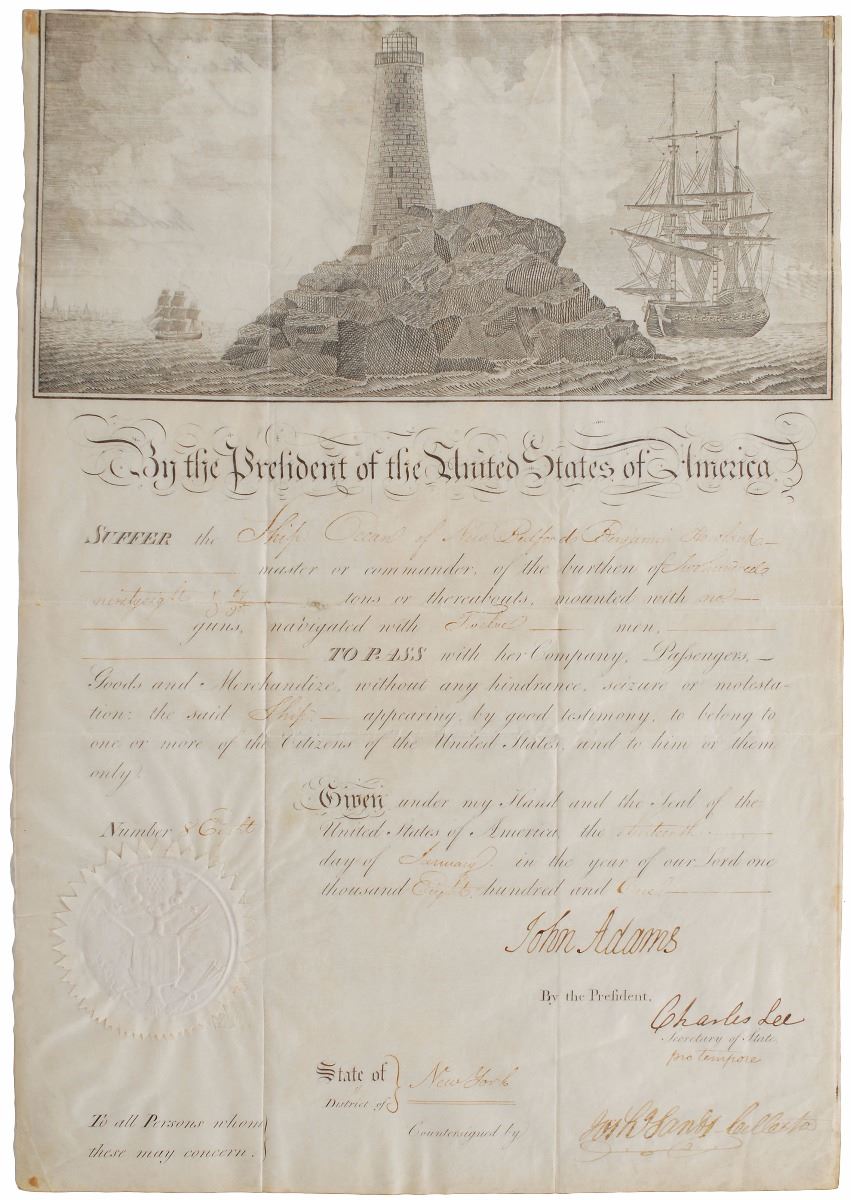 By the Preſident of the United States of America.
SUFFER the Ship Ocean of New Bedford Benjamin
master or commander, of the burthen of Two hundred
ninety eight & tons or thereabouts, mounted with no
guns, navigated with Twelve men,
TO PASS with her Company, Paſsengers,
Goods and Merchandize, without any hindrance, seizure or molesta-
tion: the said Ship appearing, by good testimony, to belong to
one or more of the Citizens of the United States, and to him or them
only.
Given under my Hand and the Seal of the
Number & Eight United States of America the
day of January in the year of our Lord one
thousand Eight hundred and One
John Adams
By the Preſident,
Charles Lee
Secretary of State
pro tempore
State of New York
District of
To all Persons whom Countersigned by
these may concern.